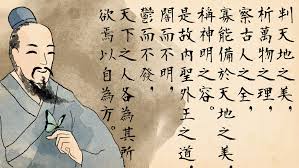 判天地之美，
析萬物之理，
察古人之全，
寡能備於天地之美，
稱神明之容。
是故內聖外王之道，
闇而不明，
鬱而不發，
天下之人各為其所
欲焉以自為方。